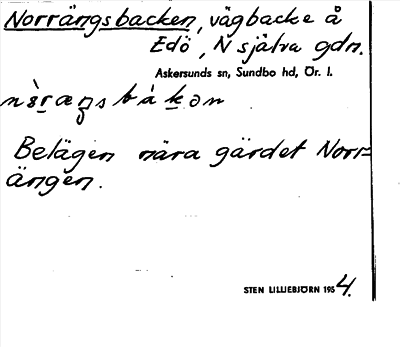 Norrängsbacken, vägbacke å
Edö, N själva gdn.
Askersunds sn, Sundbo hd, Ör. l.
Belägen nära gärdet Norr=
ängen.
STEN LILLIEBJÖRN 1954.